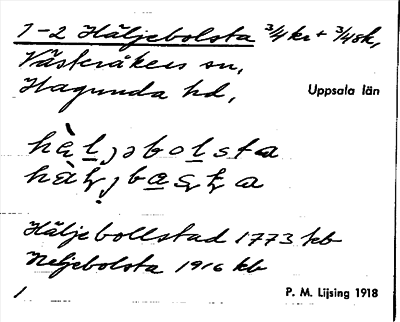 1-2 Häljebolsta 3/4 kr + 3/48 k,
Västeråkers sn,
Hagunda hd,
Uppsala län
Häljebollstad 1773 kb
Neljebolsta 1916 kb
1
P. M. Lijsing 1918